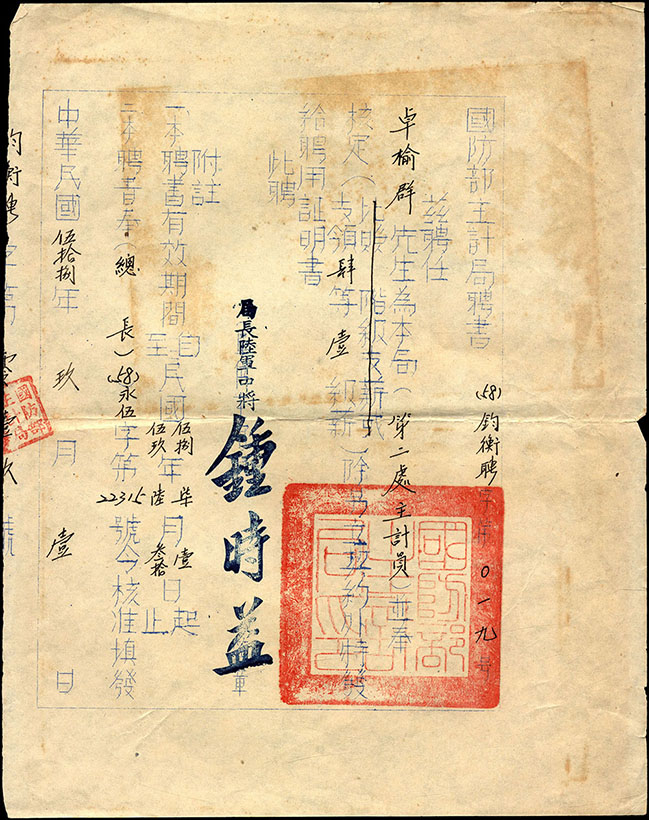 國防部主計局聘書
(58)鈞衡聘字第〇一九號
茲聘任
卓榆群先生為本局(第二處主計員)並奉
核定(比照 階級支薪或
支領肆等壹級薪)除 約外特發
給聘用証明書
此聘
局長陸軍中將鍾時益
章
附註
一本聘書有效期間自民國伍捌年柒月壹日起
至 伍玖 陸 叁拾 止
二本聘書奉(總長)(58)永伍字第22315號令核准填發
中華民國伍拾捌年玖月壹日
鈞衡聘字第 壹玖號
國防部主計局
國防部主計局印